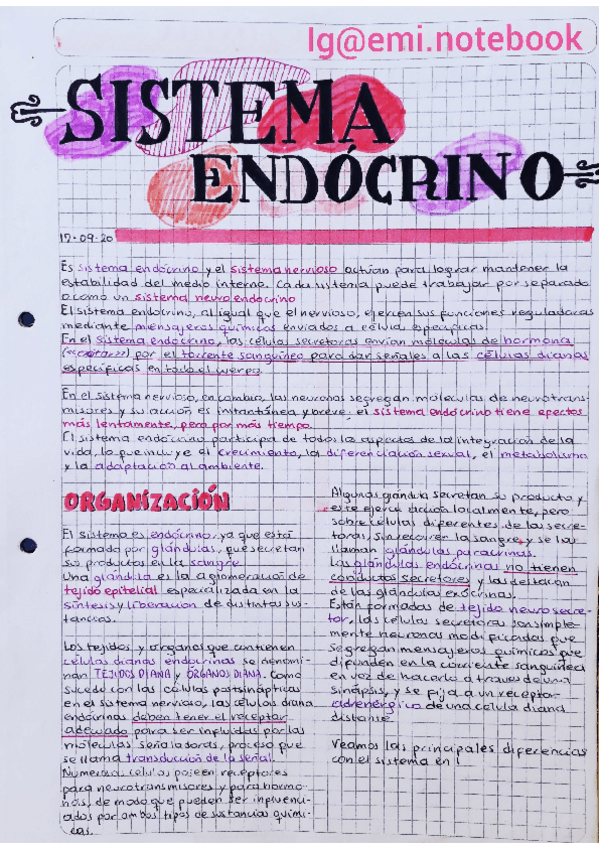 Ig@emi.notebook
SISTEMA
ENDÓCRINO
17-09-20
Es sistema endócrino y el sistema nervioso actúan para lograr mantener la
estabilidad del medio interno. Cada sistema puede trabajar por separado
o como un sistema neuro endocrino
El sistema endócrino, al igual que el nervioso, ejercen sus funciones reguladoras
mediante mensajeros químicos enviados a célula específicas.
En el sistema endócrino, las células secretoras envían moléculas de hormona
por el torrente sanguíneo para dar señales a las células dianas
específicas en todo el cuerpo.
En el sistema nervioso, en cambio, las neuronas segregan moléculas de neurotrans-
misores y su acción es instantánea y breve; el sistema endócrino tiene efectos
más lentamente, pero por más tiempo.
El sistema endócrino participa de todos los aspectos de la integración de la
vida, lo que incluye el crecimiento, la diferenciación sexual, el metabolismo
y la adaptación al ambiente.
ORGANIZACIÓN
El sistema es endócrino, ya que está
formado por glándulas, que secretan
sus productos en la sangre.
Una glándula es la aglomeración de
tejido epitelial especializada en la
síntesis y liberación de distintas sus-
tancias.
Los tejidos y órganos que contienen
células dianas endócrinas se denomi-
nan TEJIDOS DIANA y ÓRGANOS DIANA. Como
sucede con las células postsinápticas
en el sistema nervioso, las células diana
endócrinas deben tener el receptor
adecuado para ser influidas por las
moléculas señaladoras, proceso que
se llama transducción de la señal.
Numerosas células poseen receptores
para neurotransmisores y para hormo-
nas, de modo que pueden ser influenci-
adas por ambos tipos de sustancias quími-
cas.
Algunas glándula secretan su producto y
ese ejerce acción localmente, pero
sobre células diferentes de las secre-
toras, sin recorrer la sangre, y se las
llaman glándulas paracrinas.
Las glándulas endócrinas no tienen
conductos secretores y las destacan
de las glándulas exócrinas.
Están formadas de tejido neurosecre-
tor, las células secretoras son simple-
mente neuronas modificadas que
segregan mensajeros químicos que
difunden en la corriente sanguínea
en voz de hacerlo a través de una
sinápsis, y se fija a un receptor
adrenérgico de una célula diana
distante.
Veamos las principales diferencias
con el sistema en!